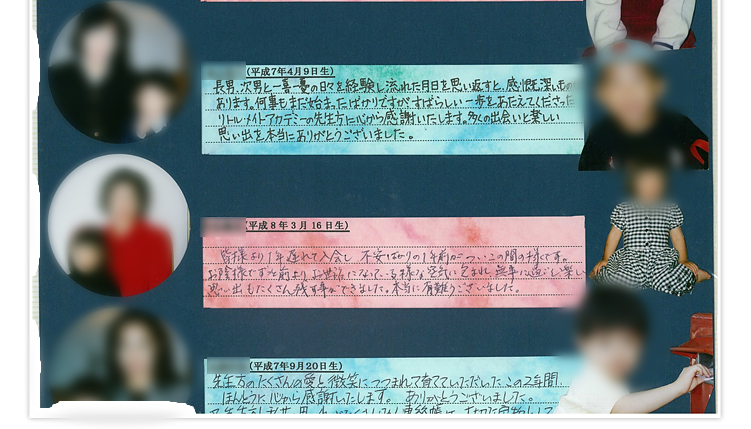 (平成7年4月9日生)
長男、次男と一喜一憂の日々を経験し流れた月日を思い返すと、感慨深いもの
あります。何事もまだ始まったばかりですが、すばらしい一歩をあたえてくださった
リトルメイトアカデミーの先生方に心から感謝いたします。多くの出会いと楽しい
思い出を本当にありがとうございました。
(平成8年3月16日生)
皆様より1年遅れて入会し 不安ばかりの1年前がついこの間の様です。
お陰様でずっと前よりお世話になっている様な空気に包まれ 無事に過ごし 楽しい
思い出もたくさん残す事ができました。本当に有難うございました。
(平成7年9月20日生)
先生方のたくさんの愛と微笑につつまれて育てていただいたこの2年間
ほんとうに心から感謝いたします。 ありがとうございました。